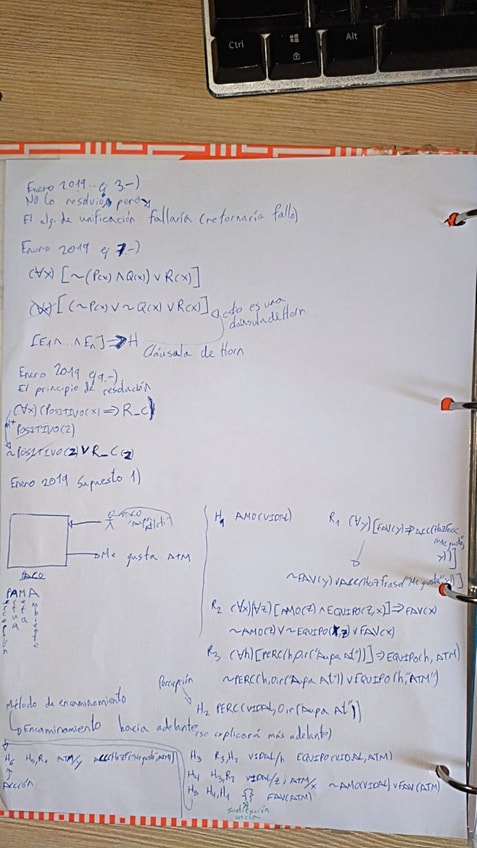 Ctrl
Alt
Enero 2019 ej 3.-)
No lo resolvió
El alg. de unificación fallaría (retornaría fallo)
Enero 2019 ej 7.-)
(∀x) [~(P(x) ∧ Q(x)) ∨ R(x)]
(∀x) [(~P(x) ∨ ~Q(x) ∨ R(x)] esto es una
cláusula de Horn
[E1 ∧ .. ∧ En] => H
Cláusula de Horn
Enero 2019 ej 9.-)
El principio de resolución
(∀x) (POSITIVO(x) => R_C)
POSITIVO(2)
~POSITIVO(2) ∨ R_C(2
Enero 2019 Supuesto 1)
Me gusta ATM
PAMA
H1 AMO(VIDAL)
R1 (∀y) [FAV(y) => ACC(HazFrase(
"Me gusta",
y))]
~FAV(y) ∨ ACC(HazFrase("Me gusta", y))]
R2 (∀x)(∀z) [AMO(z) ∧ EQUIPO(z,x)] => FAV(x)
~AMO(z) ∨ ~EQUIPO(x,z) ∨ FAV(x)
R3 (∀h) [PERC(h, Oir("Aupa At"))] => EQUIPO(h, ATM)
~PERC(h, Oir("Aupa At")) ∨ EQUIPO(h, "ATM")
Percepción
H2 PERC(VIDAL, Oir("Aupa At"))
Método de encaminamiento
Encaminamiento hacia adelante
(se explicará más adelante)
H3 R3,H2 VIDAL/h EQUIPO(VIDAL, ATM)
H4 H3,R2 VIDAL/z; ATM/x ~AMO(VIDAL) ∨ FAV(ATM)
H5 H4,H1 {} FAV(ATM)
sustitución
vacía
H6 H5,R1 ATM/y ACC(HazFrase(Me gusta, ATM))
Acción